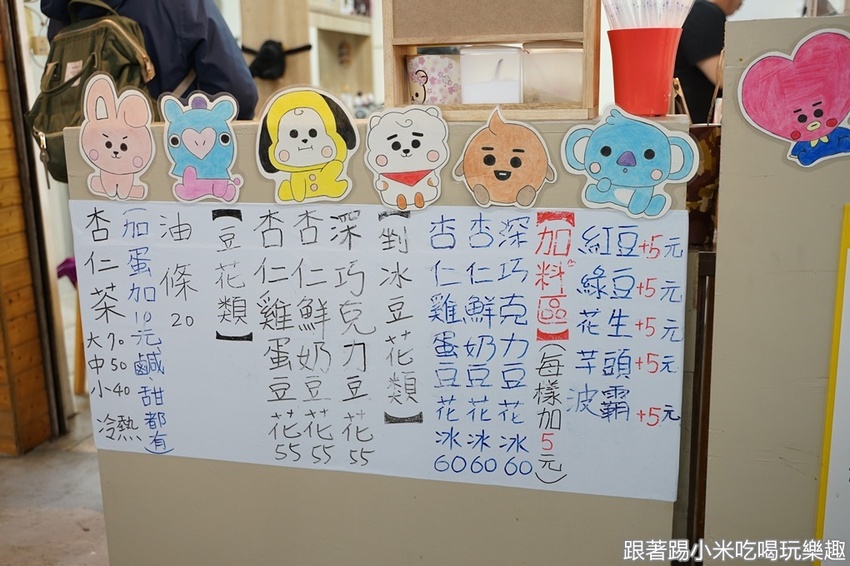 杏仁茶
大70
中50
小40
冷熱
(加蛋加10元鹹、甜都有)
油條20
【豆花類】
杏仁雞蛋豆花55
杏仁鮮奶豆花55
深巧克力豆花55
【剉冰豆花類】
杏仁雞蛋豆花冰60
杏仁鮮奶豆花冰60
深巧克力豆花冰60
【加料區】(每樣加5元)
紅豆+5元
綠豆+5元
花生+5元
芋頭+5元
波霸+5元
跟著踢小米吃喝玩樂趣